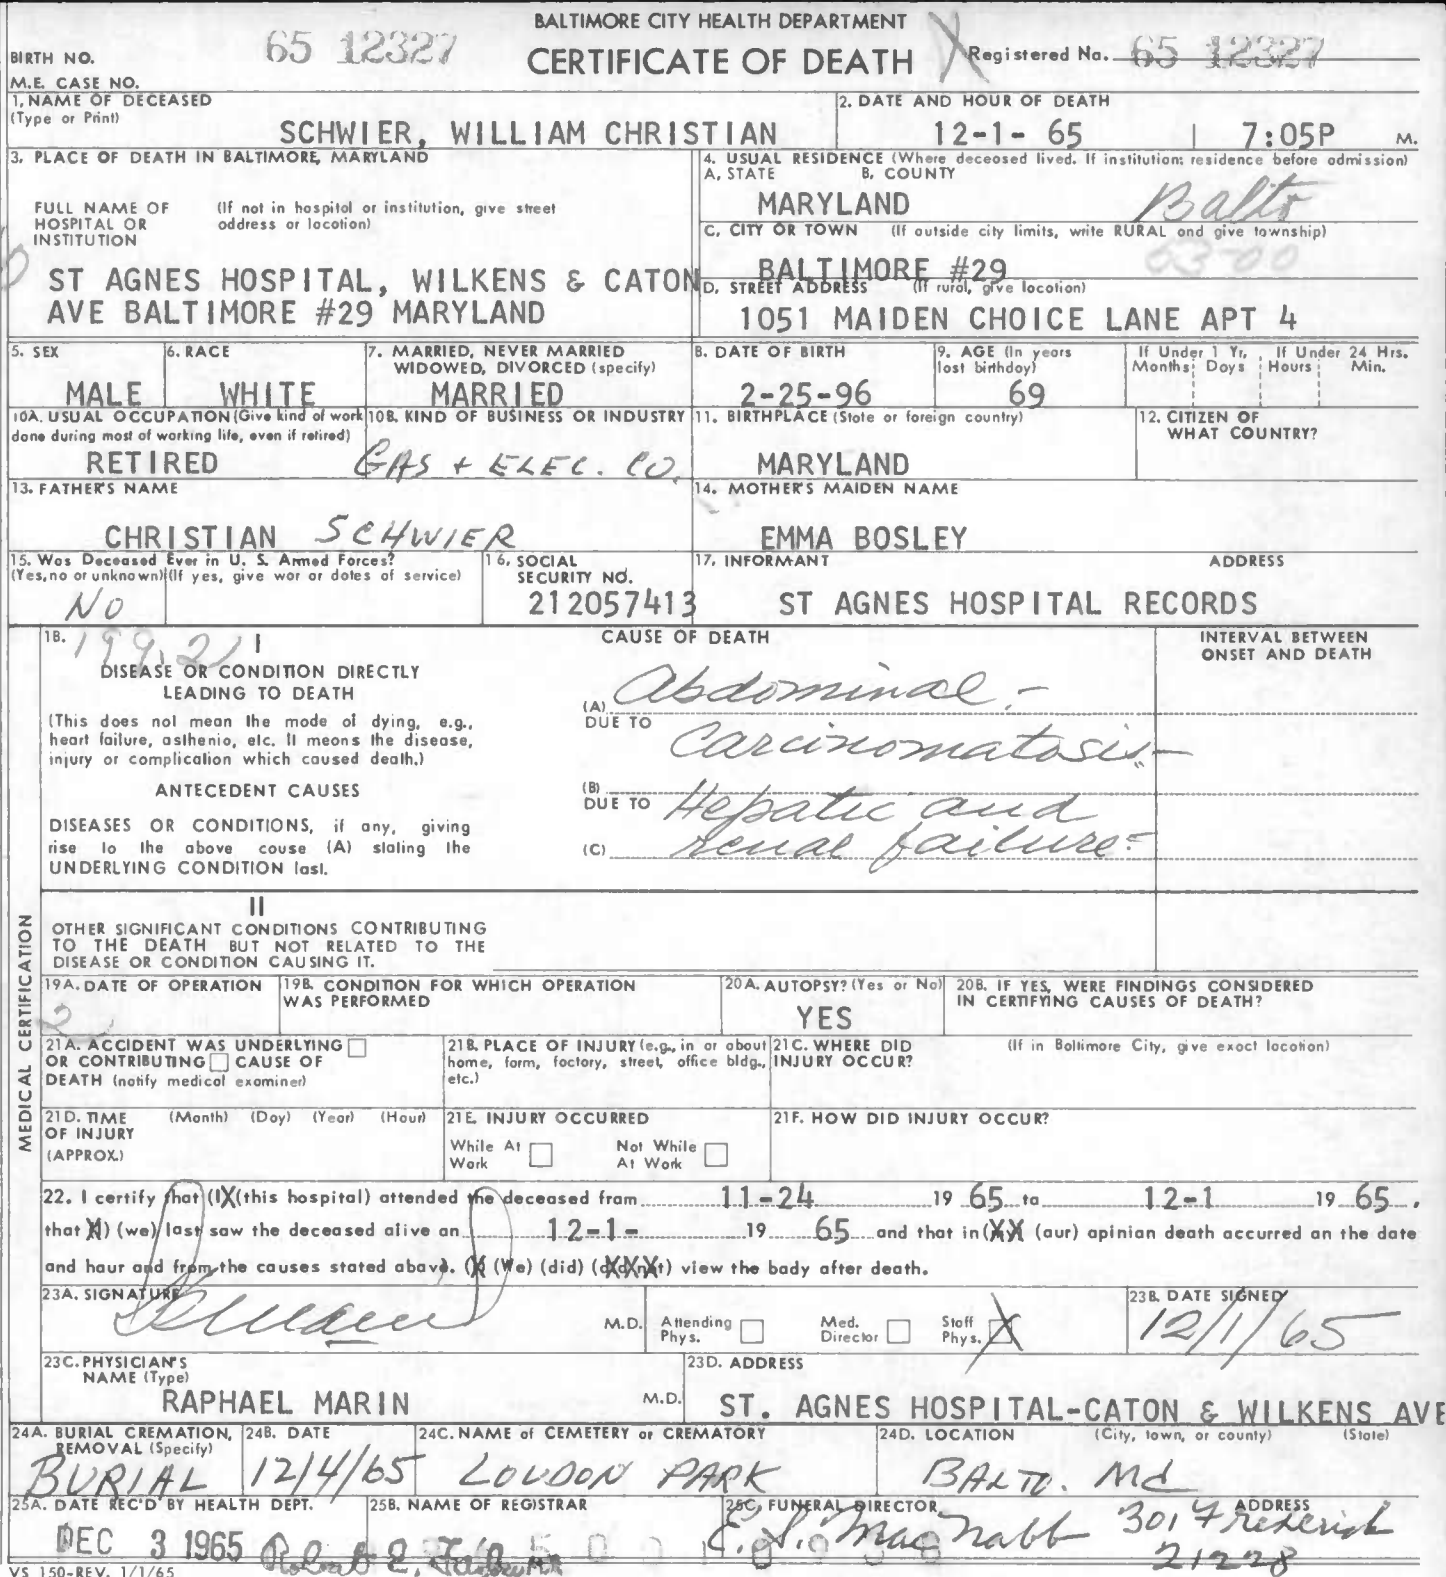 BALTIMORE CITY HEALTH DEPARTMENT
BIRTH NO. 65 12327 CERTIFICATE OF DEATH Registered No. 65 12327
M.E. CASE NO.
1. NAME OF DECEASED (Type or Print) SCHWIER, WILLIAM CHRISTIAN
2. DATE AND HOUR OF DEATH 12-1- 65 7:05P M.
3. PLACE OF DEATH IN BALTIMORE, MARYLAND
FULL NAME OF HOSPITAL OR INSTITUTION (If not in hospital or institution, give street address or location)
ST AGNES HOSPITAL, WILKENS & CATON
AVE BALTIMORE #29 MARYLAND
4. USUAL RESIDENCE (Where deceased lived. If institution: residence before admission)
A. STATE B. COUNTY
MARYLAND Balto
C. CITY OR TOWN (If outside city limits, write RURAL and give township)
BALTIMORE #29 03-00
D. STREET ADDRESS (If rural, give location)
1051 MAIDEN CHOICE LANE APT 4
5. SEX MALE
6. RACE WHITE
7. MARRIED, NEVER MARRIED WIDOWED, DIVORCED (specify) MARRIED
8. DATE OF BIRTH 2-25-96
9. AGE (In years last birthday) 69
If Under 1 Yr. Months Days
If Under 24 Hrs. Hours Min.
10A. USUAL OCCUPATION (Give kind of work done during most of working life, even if retired) RETIRED
10B. KIND OF BUSINESS OR INDUSTRY GAS + ELEC. CO.
11. BIRTHPLACE (State or foreign country) MARYLAND
12. CITIZEN OF WHAT COUNTRY?
13. FATHER'S NAME CHRISTIAN SCHWIER
14. MOTHER'S MAIDEN NAME EMMA BOSLEY
15. Was Deceased Ever in U. S. Armed Forces? (Yes, no or unknown) (If yes, give war or dates of service) NO
16. SOCIAL SECURITY NO. 212057413
17. INFORMANT ADDRESS
ST AGNES HOSPITAL RECORDS
MEDICAL CERTIFICATION
18. 199.2 I CAUSE OF DEATH INTERVAL BETWEEN ONSET AND DEATH
DISEASE OR CONDITION DIRECTLY LEADING TO DEATH
(This does not mean the mode of dying, e.g., heart failure, asthenia, etc. It means the disease, injury or complication which caused death.)
(A) Abdominal -
DUE TO Carcinomatosis -
ANTECEDENT CAUSES
DISEASES OR CONDITIONS, if any, giving rise to the above cause (A) stating the UNDERLYING CONDITION last.
(B)
DUE TO Hepatic and
(C) renal failure -
II
OTHER SIGNIFICANT CONDITIONS CONTRIBUTING TO THE DEATH BUT NOT RELATED TO THE DISEASE OR CONDITION CAUSING IT.
19A. DATE OF OPERATION 2
19B. CONDITION FOR WHICH OPERATION WAS PERFORMED
20A. AUTOPSY? (Yes or No) YES
20B. IF YES, WERE FINDINGS CONSIDERED IN CERTIFYING CAUSES OF DEATH?
21A. ACCIDENT WAS UNDERLYING OR CONTRIBUTING CAUSE OF DEATH (notify medical examiner)
21B. PLACE OF INJURY (e.g., in or about home, farm, factory, street, office bldg., etc.)
21C. WHERE DID INJURY OCCUR? (If in Baltimore City, give exact location)
21D. TIME OF INJURY (APPROX.) (Month) (Day) (Year) (Hour)
21E. INJURY OCCURRED While At Work Not While At Work
21F. HOW DID INJURY OCCUR?
22. I certify that (I) (this hospital) attended the deceased from 11-24 19 65 to 12-1 19 65,
that (I) (we) last saw the deceased alive on 12-1- 19 65 and that in (my) (our) opinion death occurred on the date
and hour and from the causes stated above. (I) (We) (did) (did not) view the body after death.
23A. SIGNATURE M.D. Attending Phys. Med. Director Staff Phys. X
23B. DATE SIGNED 12/1/65
23C. PHYSICIAN'S NAME (Type) RAPHAEL MARIN M.D.
23D. ADDRESS ST. AGNES HOSPITAL-CATON & WILKENS AVE
24A. BURIAL CREMATION, REMOVAL (Specify) BURIAL
24B. DATE 12/4/65
24C. NAME of CEMETERY or CREMATORY LOUDON PARK
24D. LOCATION (City, town, or county) (State) BALTO. Md
25A. DATE REC'D BY HEALTH DEPT. DEC 3 1965
25B. NAME OF REGISTRAR Robert E.
25C. FUNERAL DIRECTOR ADDRESS
E. S. MacNabb 301 Frederick
21228
VS 150-REV. 1/1/65